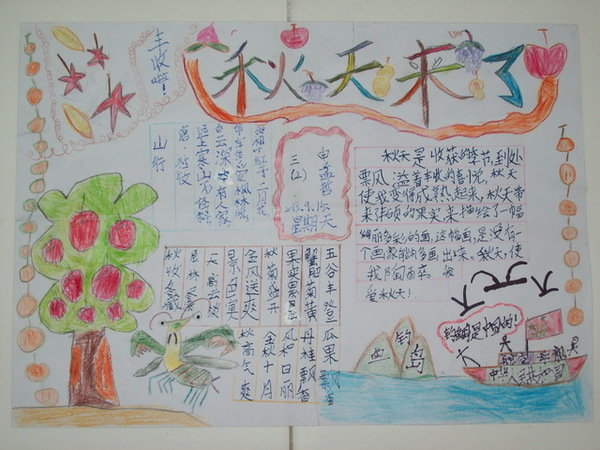 秋天来了
丰收啦！
山行
唐：杜牧
远上寒山石径斜
白云深处有人家
停车坐爱枫林晚
霜叶红于二月花
三(2)
星期天
秋天是收获的季节，到处
飘风溢着丰收的喜悦，秋天
使我变得成熟起来，秋天带
来硕的果实，来描绘了一幅
绚丽多彩的画，这幅画，是没有一
个画家能的多画出来。秋天，使
我陶醉。我
爱秋天！
五谷丰登 瓜果飘香
蟹肥菊黄 丹桂飘香
果实累累 风和日丽
秋菊盛开 金秋十月
金风送爽 秋高气爽
景色宜人
天高云淡
层林尽染
秋收冬藏
钓鱼岛是中国的！
鱼钓岛
中华人民共和国